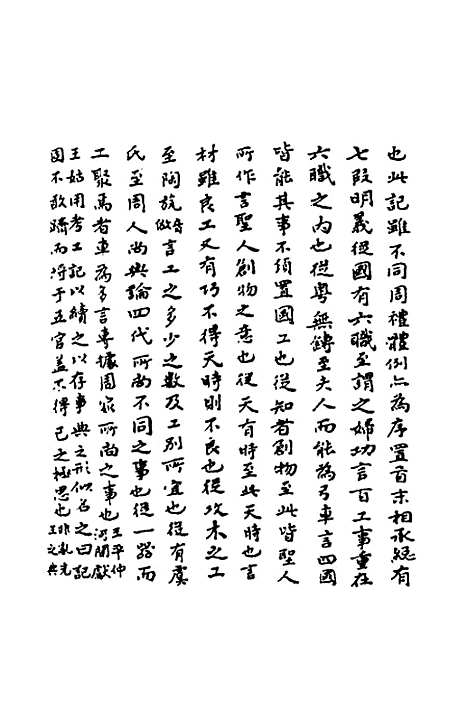 也此記雖不同周禮體例亦為序置首末相承總有
七段明義從國有六職至謂之婦功言百工事重在
六職之內也從粵無鎛至夫人而能為弓車言四國
皆能其事不須置國工也從知者創物至此皆聖人
所作言聖人創物之意也從天有時至此天時也言
材雖良工又有巧不得天時則不良也從攻木之工
至陶旊言工之多少之數及工別所宜也從有虞
氏至周人尚輿論四代所尚不同之事也從一器而
工聚焉者車為多言專據周家所尚之事也王平仲
河間獻
王姑用考工記以續之以存事典之形似名之曰記
固不敢躋而將于五官蓋不得已之極思也非孔氏
王之典